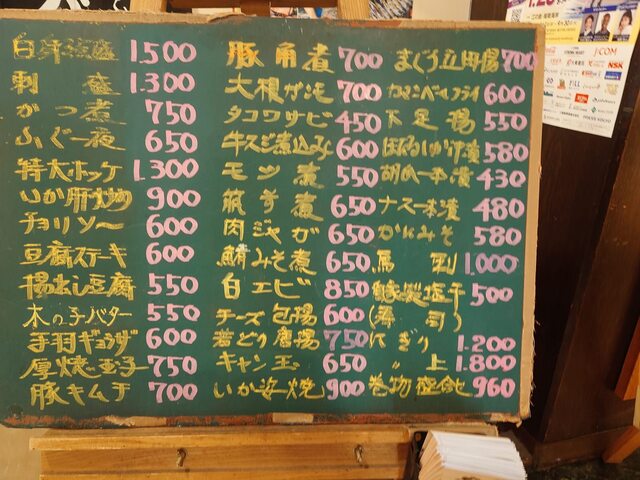 白身活盛 1.500
刺盛 1.300
かつ煮 750
ふぐ一夜 650
特大ホッケ 1.300
いか肝炒め 900
チョリソー 600
豆腐ステーキ 600
揚出し豆腐 550
木の子バター 550
手羽ギョウザ 600
厚焼玉子 750
豚キムチ 700
豚角煮 700
大根ガンモ 700
タコワサビ 450
牛スジ煮込み 600
モツ煮 550
筑前煮 650
肉ジャガ 650
鯖みそ煮 650
白エビ 850
チーズ包揚 600
若どり唐揚 750
キャン玉 650
いか姿焼 900
まぐろ立田揚 700
カマンベールフライ 600
下足揚 550
580
胡瓜一本漬 430
ナス一本漬 480
かにみそ 580
馬刺 1.000
塩干 500
(寿司)
にぎり 1.200
〃 上 1.800
巻物 960
J:COM
NSK
FILL